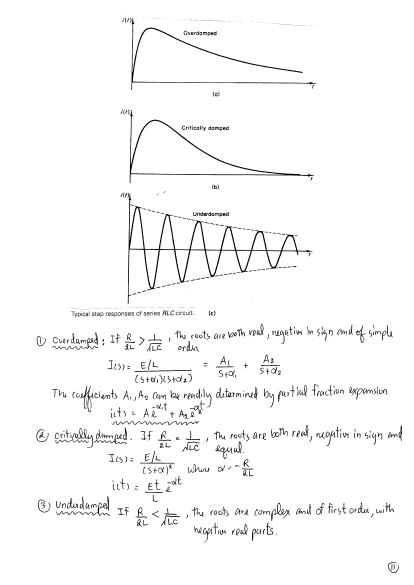 i(t)
Overdamped
t
(a)
i(t)
Critically damped
t
(b)
i(t)
Underdamped
t
(c)
Typical step responses of series RLC circuit.
① Overdamped: If R/2L > 1/√LC, the roots are both real, negative in sign and of simple
order
I(s) = E/L / (s+α₁)(s+α₂) = A₁/s+α₁ + A₂/s+α₂
The coefficients A₁, A₂ can be readily determined by partial fraction expansion
② critically damped. If R/2L = 1/√LC, the roots are both real, negative in sign and
equal.
I(s) = E/L / (s+α)² where α = -R/2L
i(t) = Et/L e^-αt
③ Underdamped If R/2L < 1/√LC, the roots are complex and of first order, with
negative real parts.
11